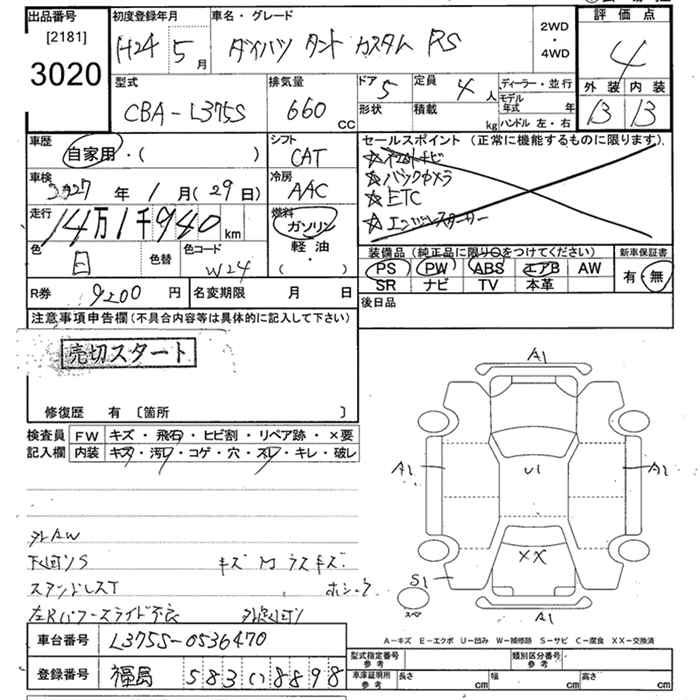 出品番号 初度登録年月 車名・グレード 2WD ・ 4WD 評価点
[2181]
3020
H24 5月 ダイハツ タント カスタム RS 4
型式 排気量 ドア 5 定員 4人 ディーラー・並行 外装 内装
CBA-L375S 660 cc 形状 積載 kg モデル年式 年 B B
ハンドル 左・右
車歴 自家用・( ) シフト CAT セールスポイント (正常に機能するものに限ります)
車検 27年 1月(29日) 冷房 AAC
☆バックカメラ
☆ETC
☆エンジンスターター
走行 14万1千940 km 燃料 ガソリン 軽油 ・ ( )
色 白 色替 色コード W24
装備品 (純正品に限り○をつけてください) 新車保証書
PS PW ABS エアB AW 有・無
SR ナビ TV 本革
R券 9200円 名変期限 月 日 後日品
注意事項申告欄(不具合内容等は具体的に記入して下さい)
売切スタート
修復歴 有 〔箇所 〕
検査員 FW キズ・飛石・ヒビ割・リペア跡・×要
記入欄 内装 キズ・汚レ・コゲ・穴・スレ・キレ・破レ
A1
A1 U1 A1
XX
S1
スペア A1
外AW
下回りS キズ M ラスキズ
スタンドレスT
左Rパワースライド不良
A-キズ E-エクボ U-凹み W-補修跡 S-サビ C-腐食 XX-交換済
車台番号 L375S-0536470
登録番号 福島 583 い 8898
型式指定番号 参考 類別区分番号 参考
車庫証明所 参考 長さ cm 幅 cm 高さ cm